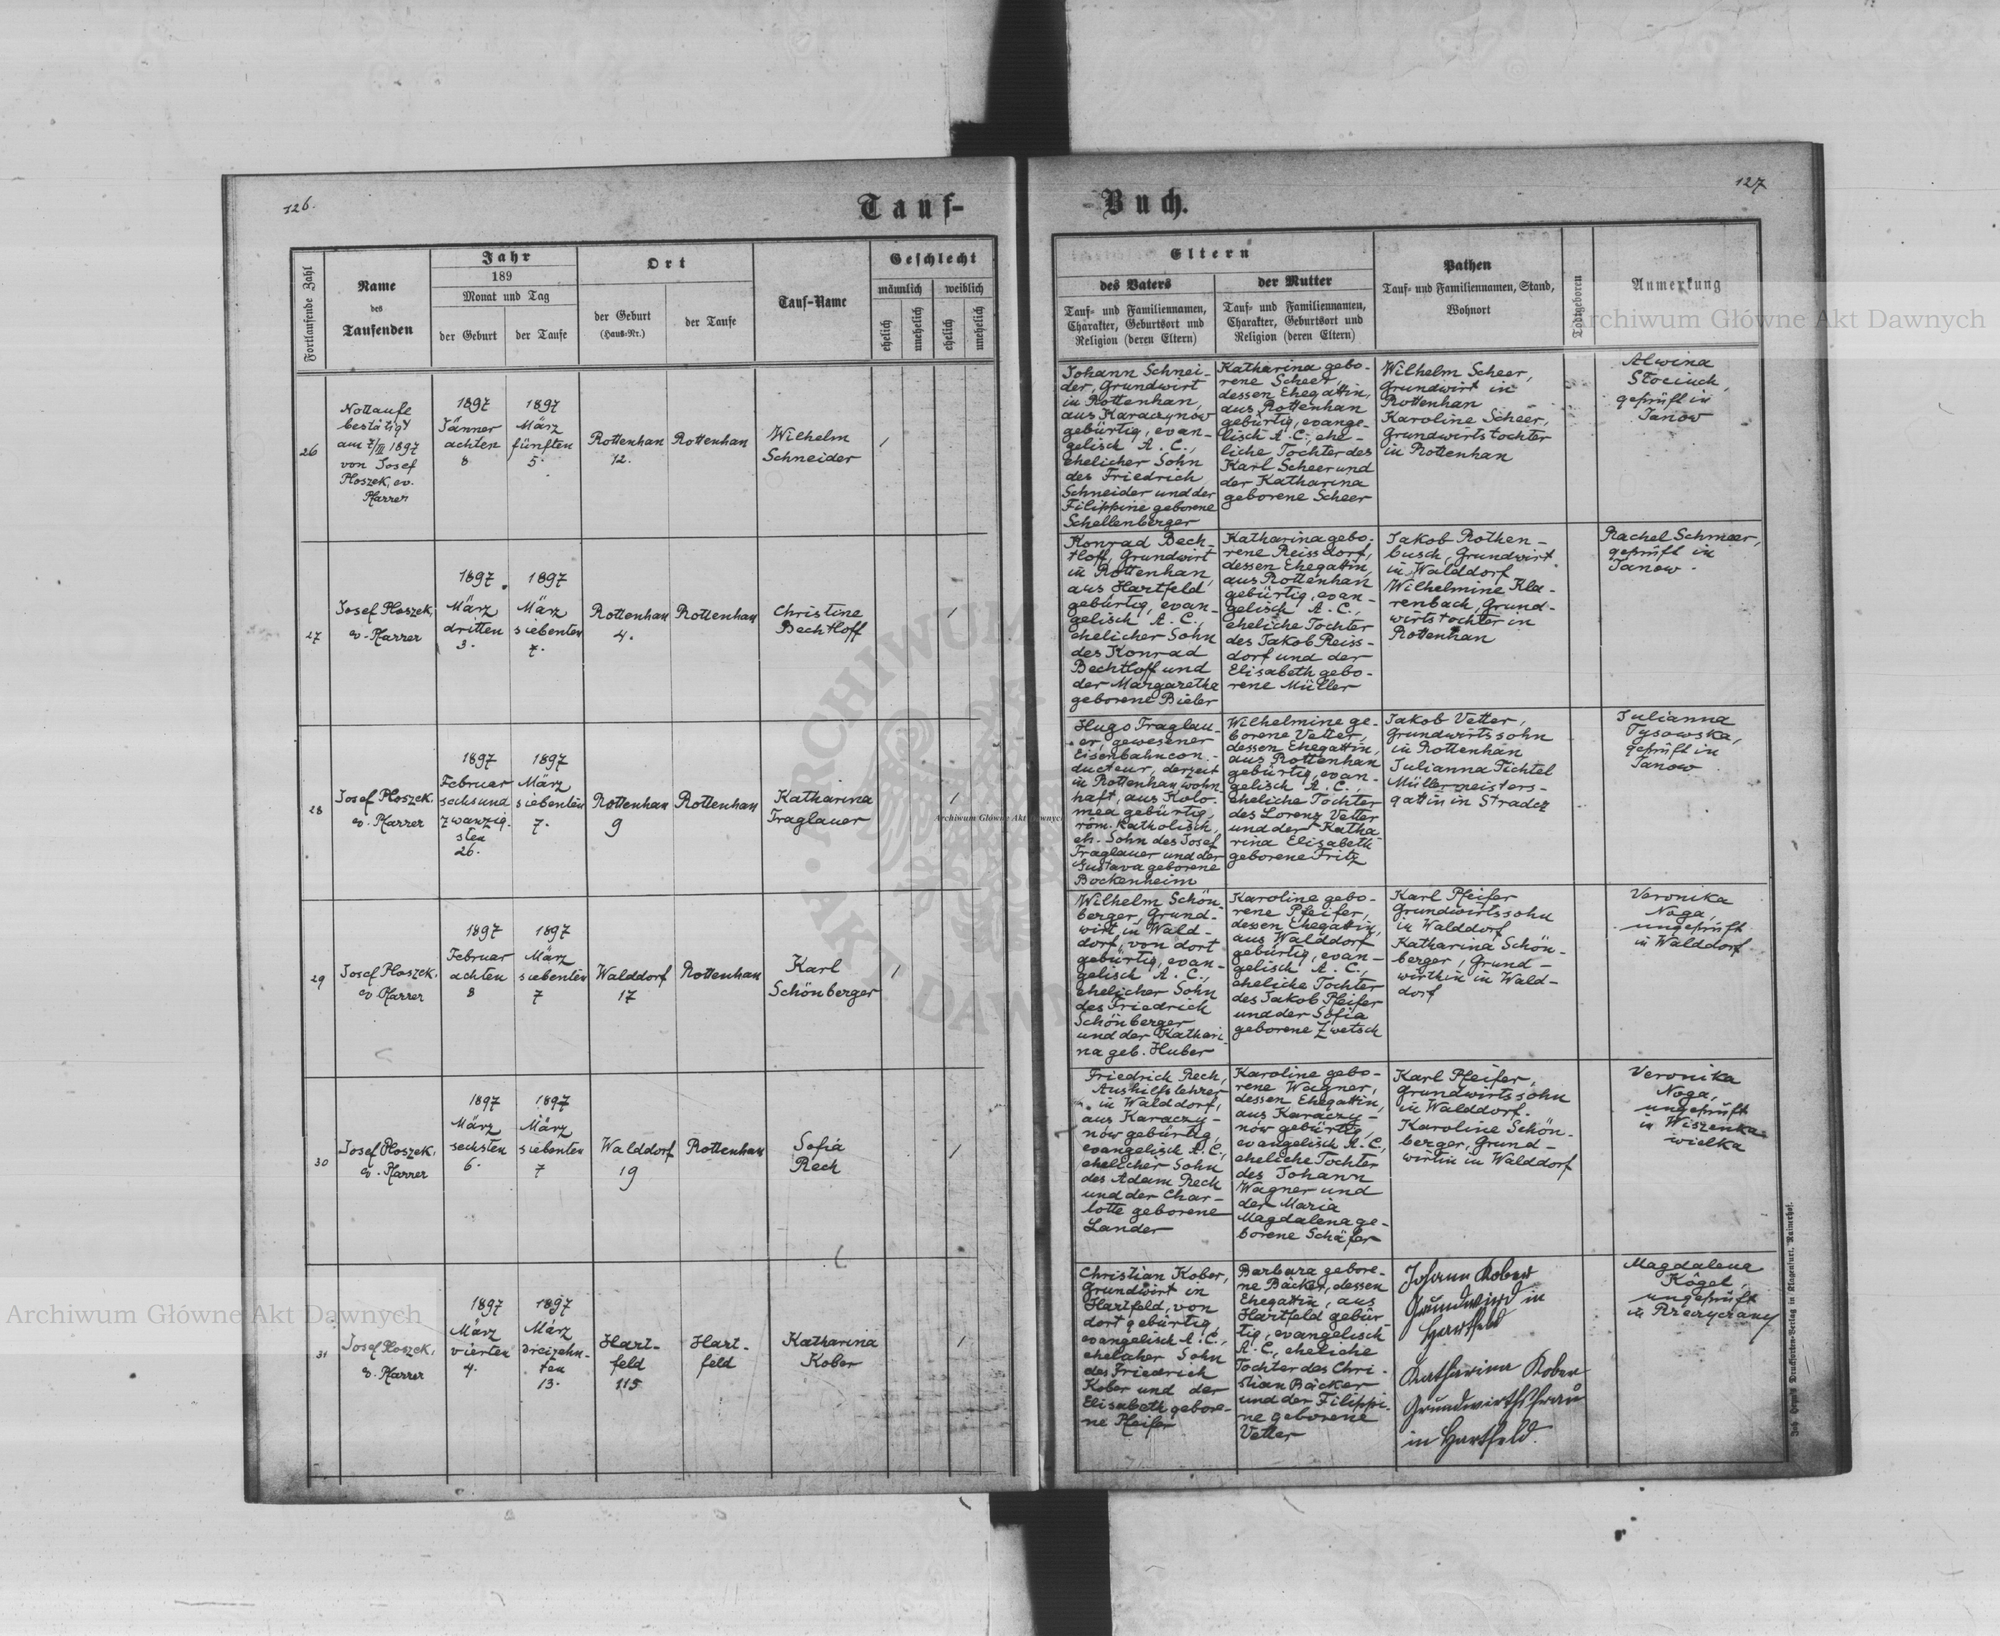 126.
Tauf-
Fortlaufende Zahl
Name
des
Taufenden
Jahr
189
Monat und Tag
der Geburt
der Taufe
Ort
der Geburt
(Haus-Nr.)
der Taufe
Tauf-Name
Geschlecht
männlich
weiblich
ehelich
unehelich
ehelich
unehelich
26
Nottaufe
bestätigt
am 7/III 1897
von Josef
Ploszek, ev.
Pfarrer
1897
Jänner
achten
8
1897
März
fünften
5.
Rottenhan
12.
Rottenhan
Wilhelm
Schneider
1
27
Josef Ploszek,
ev. Pfarrer
1897
März
dritten
3.
1897
März
siebenten
7.
Rottenhan
4.
Rottenhan
Christine
Bechtloff
1
28
Josef Ploszek,
ev. Pfarrer
1897
Februar
sechsund
zwanzig-
sten
26.
1897
März
siebenten
7.
Rottenhan
9
Rottenhan
Katharina
Fraglauer
1
29
Josef Ploszek,
ev. Pfarrer
1897
Februar
achten
8
1897
März
siebenten
7
Walddorf
17
Rottenhan
Karl
Schönberger
1
30
Josef Ploszek,
ev. Pfarrer
1897
März
sechsten
6.
1897
März
siebenten
7
Walddorf
19
Rottenhan
Sofia
Rech
1
31
Josef Ploszek,
ev. Pfarrer
1897
März
vierten
4.
1897
März
dreizehn-
ten
13.
Hart-
feld
115
Hart-
feld
Katharina
Kober
1
127
Buch.
Eltern
des Vaters
Tauf- und Familiennamen,
Charakter, Geburtsort und
Religion (deren Eltern)
der Mutter
Tauf- und Familiennamen,
Charakter, Geburtsort und
Religion (deren Eltern)
Pathen
Tauf- und Familiennamen, Stand,
Wohnort
Todtgeboren
Anmerkung
Johann Schnei-
der, Grundwirt
in Rottenhan,
aus Karaczynów
gebürtig, evan-
gelisch A. C.,
ehelicher Sohn
des Friedrich
Schneider und der
Filippine geborene
Schellenberger
Katharina gebo-
rene Scheer,
dessen Ehegattin,
aus Rottenhan
gebürtig, evange-
lisch A. C., ehe-
liche Tochter des
Karl Scheer und
der Katharina
geborene Scheer
Wilhelm Scheer,
Grundwirt in
Rottenhan
Karoline Scheer,
Grundwirtstochter
in Rottenhan
Alwina
Stociuch,
geprüft in
Janow
Konrad Bech-
tloff, Grundwirt
in Rottenhan,
aus Hartfeld
gebürtig, evan-
gelisch A. C.,
ehelicher Sohn
des Konrad
Bechtloff und
der Margarethe
geborene Bieler
Katharina gebo-
rene Reissdorf,
dessen Ehegattin,
aus Rottenhan
gebürtig, evan-
gelisch A. C.,
eheliche Tochter
des Jakob Reiss-
dorf und der
Elisabeth gebo-
rene Müller
Jakob Rothen-
busch, Grundwirt
in Walddorf
Wilhelmine Kla-
renbach, Grund-
wirtstochter in
Rottenhan
Rachel Schmeer,
geprüft in
Janow.
Hugo Fraglau-
er, gewesener
Eisenbahncon-
ducteur, derzeit
in Rottenhan wohn-
haft, aus Kolo-
mea gebürtig,
röm. Katholisch,
eh. Sohn des Josef
Fraglauer und der
Gustava geborene
Bockenheim
Wilhelmine ge-
borene Vetter,
dessen Ehegattin,
aus Rottenhan
gebürtig, evan-
gelisch A. C.,
eheliche Tochter
des Lorenz Vetter
und der Katha-
rina Elisabeth
geborene Fritz
Jakob Vetter,
Grundwirtssohn
in Rottenhan
Julianna Fichtel
Müllermeisters-
gattin in Stradcz
Julianna
Tysowska,
geprüft in
Janow
Wilhelm Schön-
berger, Grund-
wirt in Wald-
dorf, von dort
gebürtig, evan-
gelisch A. C.,
ehelicher Sohn
des Friedrich
Schönberger
und der Kathari-
na geb. Huber
Karoline gebo-
rene Pfeifer,
dessen Ehegattin,
aus Walddorf
gebürtig, evan-
gelisch A. C.,
eheliche Tochter
des Jakob Pfeifer
und der Sofia
geborene Zwetsch
Karl Pfeifer
Grundwirtssohn
in Walddorf
Katharina Schön-
berger, Grund-
wirthin in Wald-
dorf
Veronika
Noga,
ungeprüft
in Walddorf
Friedrich Rech,
Aushilfslehrer
in Walddorf,
aus Karaczy-
nów gebürtig,
evangelisch A. C.,
ehelicher Sohn
des Adam Rech
und der Char-
lotte geborene
Lander
Karoline gebo-
rene Wagner,
dessen Ehegattin,
aus Karaczy-
nów gebürtig,
evangelisch A. C.,
eheliche Tochter
des Johann
Wagner und
der Maria
Magdalena ge-
borene Schäfer
Karl Pfeifer,
Grundwirtssohn
in Walddorf.
Karoline Schön-
berger, Grund-
wirtin in Walddorf
Veronika
Noga,
ungeprüft
in Wiszenka
wielka
Christian Kober,
Grundwirt in
Hartfeld, von
dort gebürtig,
evangelisch A. C.,
ehelicher Sohn
des Friedrich
Kober und der
Elisabeth gebore-
ne Pfeifer
Barbara gebore-
ne Bäcker, dessen
Ehegattin, aus
Hartfeld gebür-
tig, evangelisch
A. C., eheliche
Tochter des Chri-
stian Bäcker
und der Filippi-
ne geborene
Vetter
Johann Kober
Grundwirth in
Hartfeld
Katharina Kober
Grundwirthsfrau
in Hartfeld.
Magdalena
Kögel,
ungeprüft
in Przeryczany
Joh. Leon'd Drucksorten-Verlag in Klagenfurt, Rainerhof.
Archiwum Główne Akt Dawnych
Archiwum Główne Akt Dawnych
Archiwum Główne Akt Dawnych
ARCHIWUM
AKT DAWN